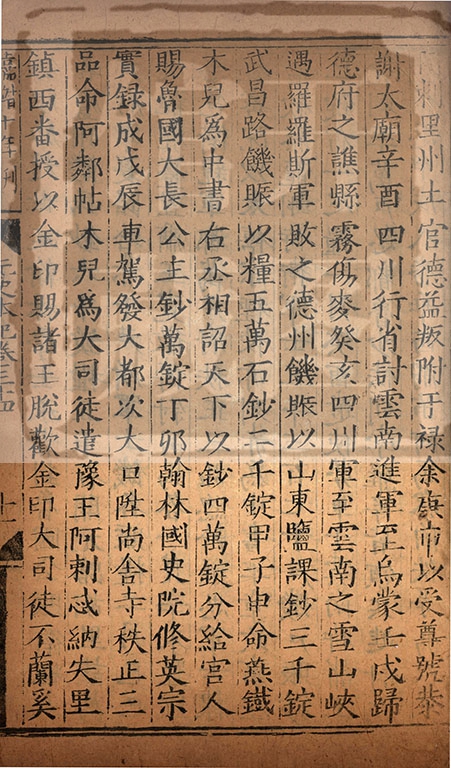 刺里州土官德益叛附于禄余庚申以受尊號恭
謝太廟辛酉四川行省討雲南進軍至烏蒙壬戌歸
德府之譙縣霧傷麥癸亥四川軍至雲南之雪山峽
遇羅羅斯軍敗之德州饑賑以山東鹽課鈔三千錠
武昌路饑賑以糧五萬石鈔二千錠甲子申命燕鐵
木兒為中書右丞相詔天下以鈔四萬錠分給宫人
賜魯國大長公主鈔萬錠丁夘翰林國史院修英宗
實録成戊辰車駕發大都次大口陞尚舍寺秩正三
品命阿鄰帖木兒爲大司徒遣豫王阿剌忒納失里
鎮西番授以金印賜諸王脫歡金印大司徒不蘭奚
嘉靖十年刊 元史本紀卷三十四 十一